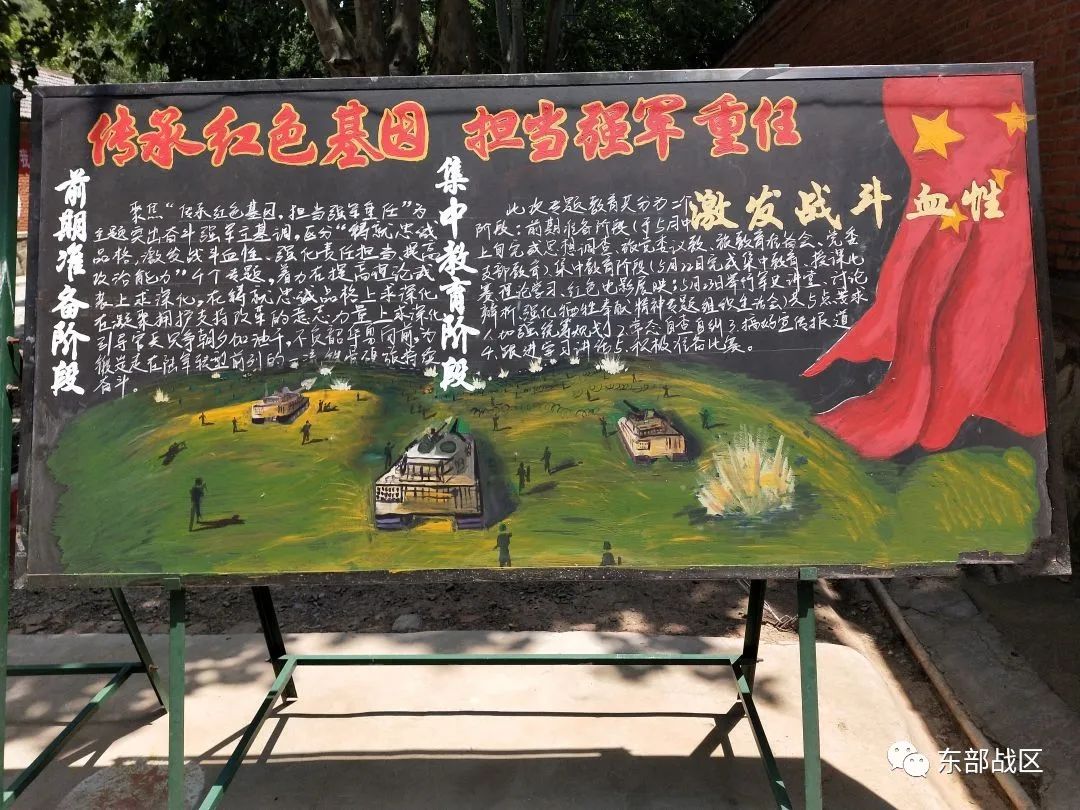 传承红色基因 担当强军重任
激发战斗血性
前期准备阶段
聚焦“传承红色基因,担当强军重任”为
主题突出奋斗强军主基调,区分“铸就忠诚
品格,激发战斗血性、强化责任担当、提高
政治能力”4个专题,着力在提高理论武
装上求深化,在铸就忠诚品格上求深化
在凝聚拥护支持改革的意志力量上求深化
引导官兵只争朝夕加油干,不负韶华勇向前,为
奋斗。
集中教育阶段
此次专题教育共分为二个
阶段:前期准备阶段(于5月中
上旬完成思想调查、旅党委议教、旅教育准备会、党委
支部教育)、集中教育阶段(5月22日完成集中教育、授课比
赛理论学习、红色电影展映;5月23日举行军史讲堂、讨论
辨析强化牺牲奉献精神专题组织生活会)及5点要求
1.加强统筹规划 2.常态自查自纠3.搞好宣传报道
4.跟进学习讲话5.积极准备比赛。
东部战区